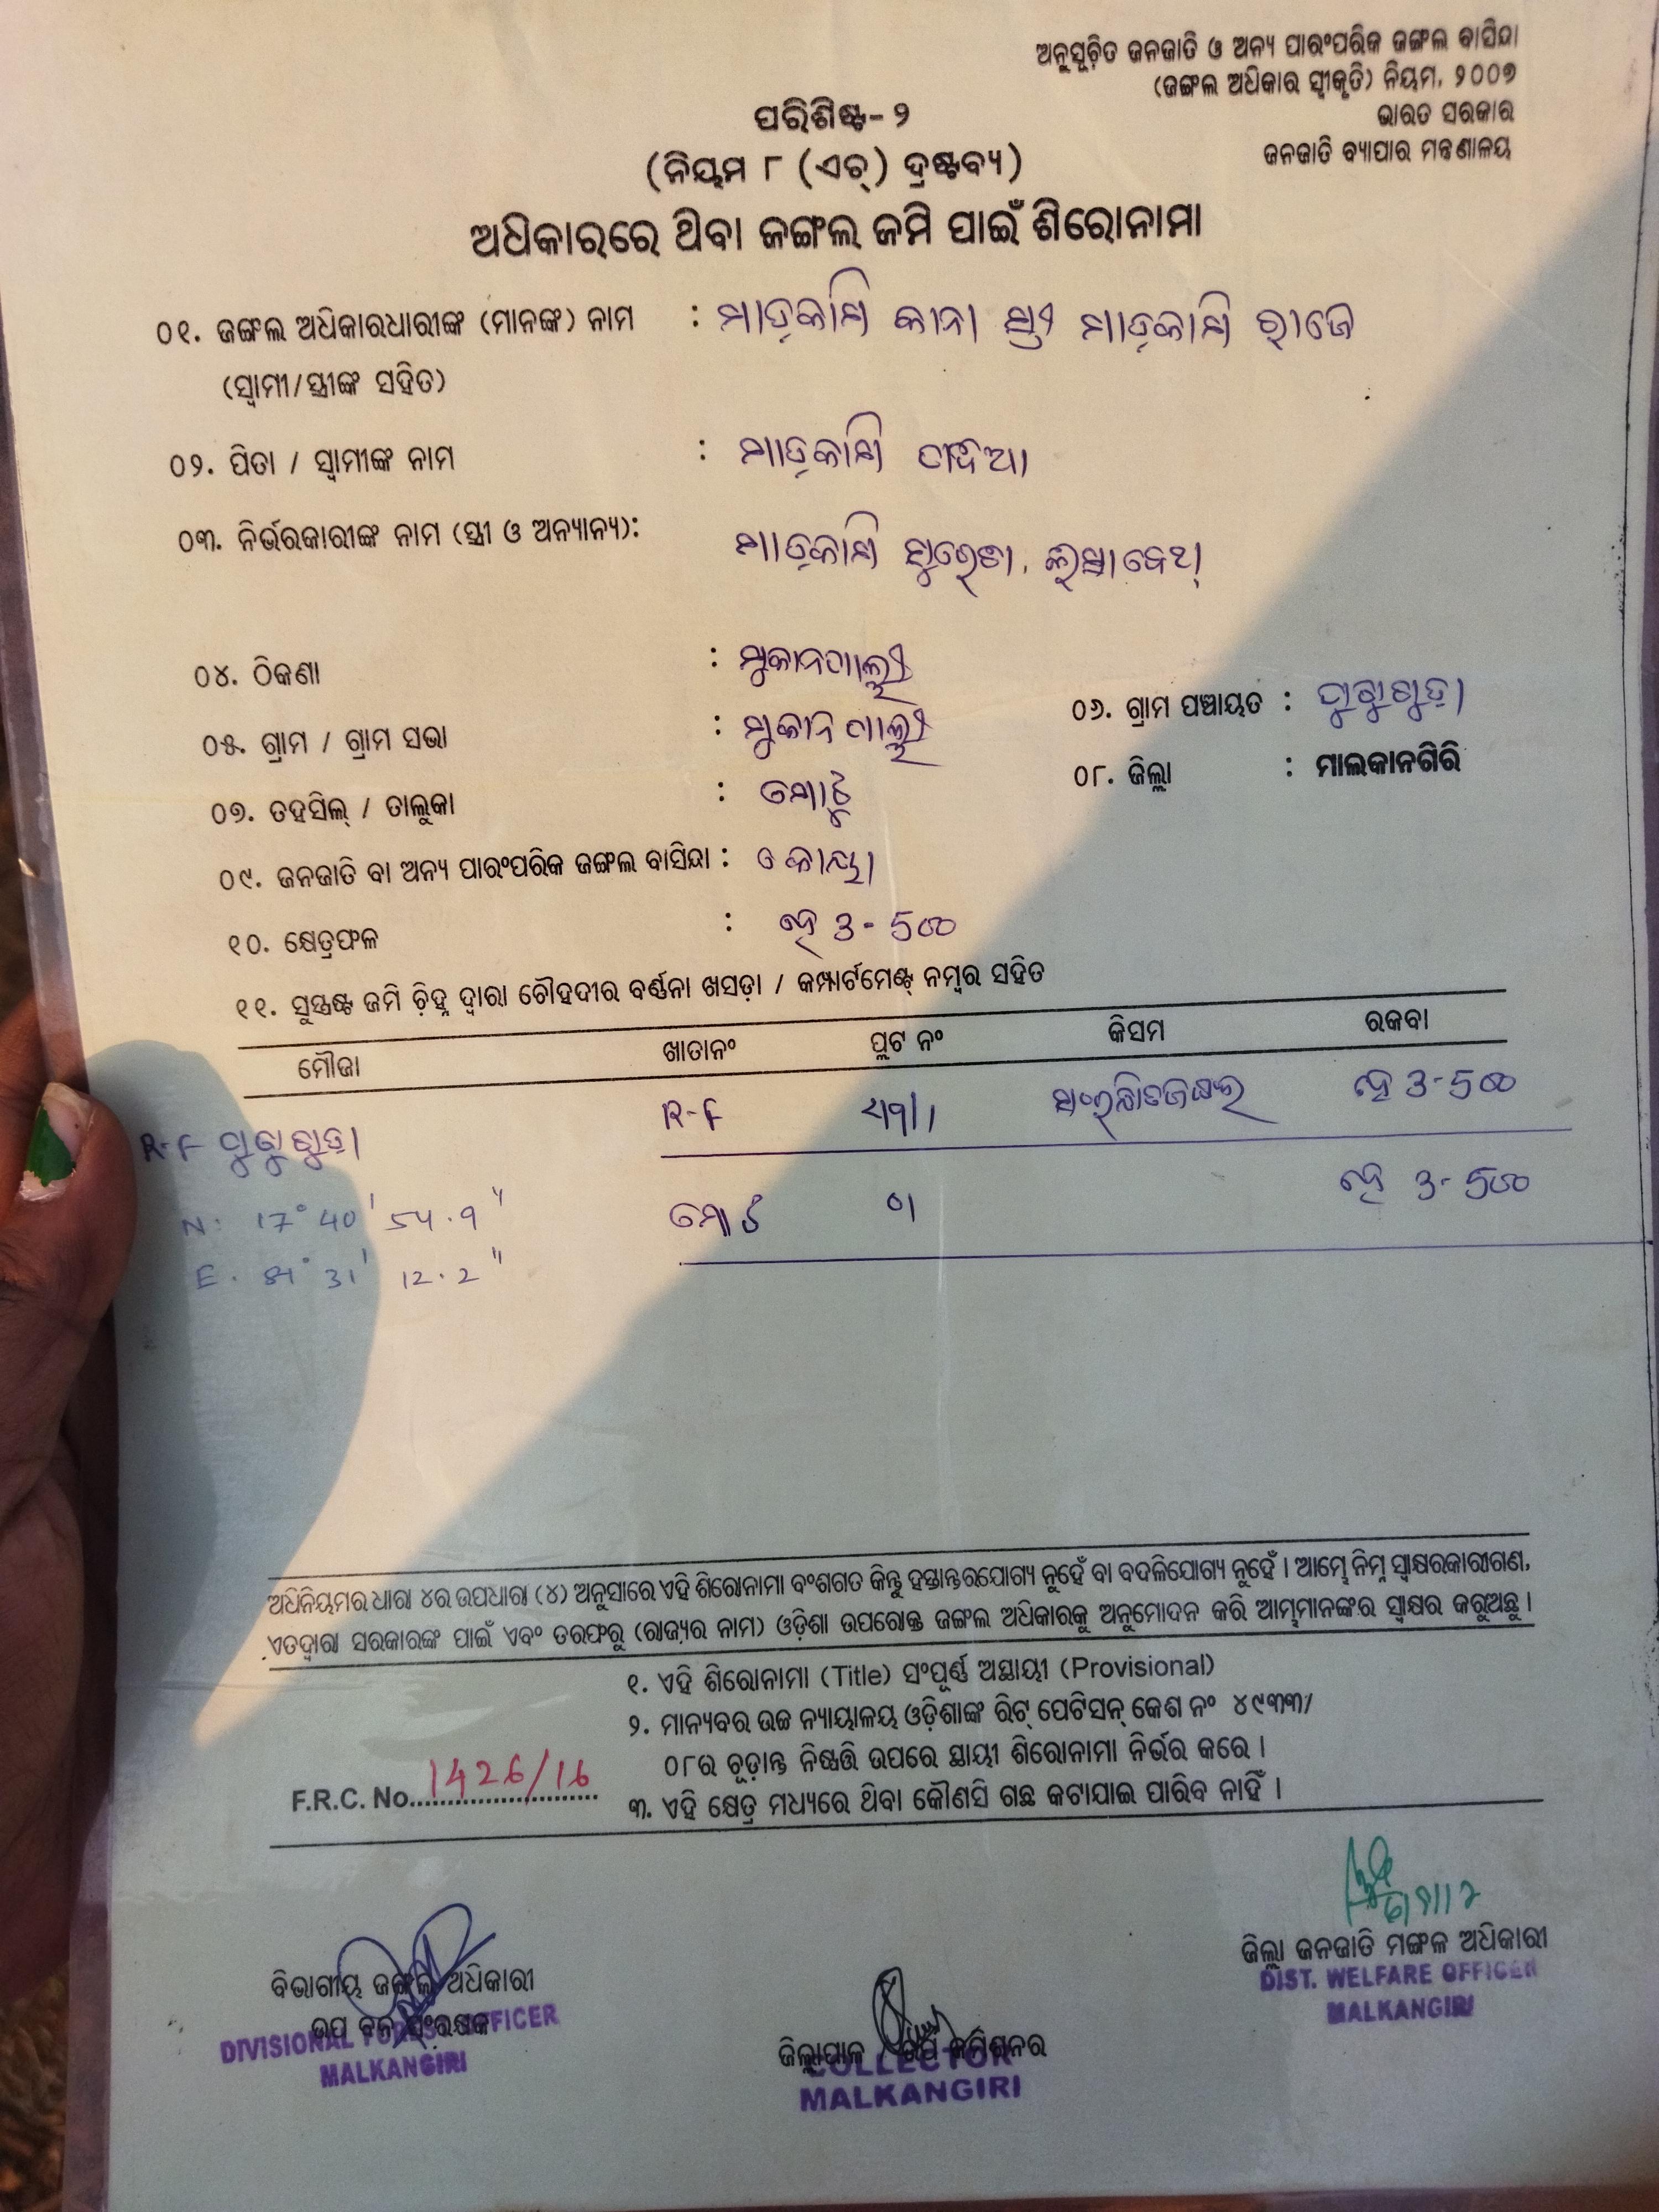 ଅନୁସୂଚିତ ଜନଜାତି ଓ ଅନ୍ୟ ପାରଂପରିକ ଜଙ୍ଗଲ ବାସିନ୍ଦା
(ଜଙ୍ଗଲ ଅଧିକାର ସ୍ୱୀକୃତି) ନିୟମ, ୨୦୦୭
ଭାରତ ସରକାର
ଜନଜାତି ବ୍ୟାପାର ମନ୍ତ୍ରଣାଳୟ
ପରିଶିଷ୍ଟ-୨
(ନିୟମ ୮ (ଏଚ୍) ଦ୍ରଷ୍ଟବ୍ୟ)
ଅଧିକାରରେ ଥିବା ଜଙ୍ଗଲ ଜମି ପାଇଁ ଶିରୋନାମା
୦୧. ଜଙ୍ଗଲ ଅଧିକାରଧାରୀଙ୍କ (ମାନଙ୍କ) ନାମ : ମାଡ଼କାମି କାନା ସ୍ତ୍ରୀ ମାଡ଼କାମି ରାଜେ
(ସ୍ୱାମୀ/ସ୍ତ୍ରୀଙ୍କ ସହିତ)
୦୨. ପିତା / ସ୍ୱାମୀଙ୍କ ନାମ : ମାଡ଼କାମି
୦୩. ନିର୍ଭରକାରୀଙ୍କ ନାମ (ସ୍ତ୍ରୀ ଓ ଅନ୍ୟାନ୍ୟ): ମାଡ଼କାମି
୦୪. ଠିକଣା :
୦୫. ଗ୍ରାମ / ଗ୍ରାମ ସଭା :
୦୬. ଗ୍ରାମ ପଞ୍ଚାୟତ :
୦୭. ତହସିଲ୍ / ତାଲୁକା : ମୋଟୁ
୦୮. ଜିଲ୍ଲା : ମାଲକାନଗିରି
୦୯. ଜନଜାତି ବା ଅନ୍ୟ ପାରଂପରିକ ଜଙ୍ଗଲ ବାସିନ୍ଦା : କୋୟା
୧୦. କ୍ଷେତ୍ରଫଳ : ହେ 3-500
୧୧. ସୁସ୍ପଷ୍ଟ ଜମି ଚିହ୍ନ ଦ୍ୱାରା ଚୌହଦୀର ବର୍ଣ୍ଣନା ଖସଡ଼ା / କମ୍ପାର୍ଟମେଣ୍ଟ୍ ନମ୍ବର ସହିତ
ମୌଜା ଖାତାନଂ ପ୍ଲଟ ନଂ କିସମ ରକବା
R-F R-F ସଂରକ୍ଷିତଜଙ୍ଗଲ ହେ 3-500
ମୋଟ ହେ 3-500
N: 17° 40' 54.9"
E. 81° 31' 12.2"
ଅଧିନିୟମର ଧାରା ୪ର ଉପଧାରା (୪) ଅନୁସାରେ ଏହି ଶିରୋନାମା ବଂଶଗତ କିନ୍ତୁ ହସ୍ତାନ୍ତରଯୋଗ୍ୟ ନୁହେଁ ବା ବଦଳିଯୋଗ୍ୟ ନୁହେଁ । ଆମ୍ଭେ ନିମ୍ନ ସ୍ୱାକ୍ଷରକାରୀଗଣ,
ଏତଦ୍ୱାରା ସରକାରଙ୍କ ପାଇଁ ଏବଂ ତରଫରୁ (ରାଜ୍ୟର ନାମ) ଓଡ଼ିଶା ଉପରୋକ୍ତ ଜଙ୍ଗଲ ଅଧିକାରକୁ ଅନୁମୋଦନ କରି ଆମ୍ଭମାନଙ୍କର ସ୍ୱାକ୍ଷର କରୁଅଛୁ ।
୧. ଏହି ଶିରୋନାମା (Title) ସଂପୂର୍ଣ୍ଣ ଅସ୍ଥାୟୀ (Provisional)
୨. ମାନ୍ୟବର ଉଚ୍ଚ ନ୍ୟାୟାଳୟ ଓଡ଼ିଶାଙ୍କ ରିଟ୍ ପେଟିସନ୍ କେଶ ନଂ ୪୯୩୩/
୦୮ର ଚୂଡ଼ାନ୍ତ ନିଷ୍ପତ୍ତି ଉପରେ ସ୍ଥାୟୀ ଶିରୋନାମା ନିର୍ଭର କରେ ।
୩. ଏହି କ୍ଷେତ୍ର ମଧ୍ୟରେ ଥିବା କୌଣସି ଗଛ କଟାଯାଇ ପାରିବ ନାହିଁ ।
F.R.C. No. 1426/16
ବିଭାଗୀୟ ଜଙ୍ଗଲ ଅଧିକାରୀ
ଉପ ବନ ସଂରକ୍ଷକ
DIVISIONAL FOREST OFFICER
MALKANGIRI
ଜିଲ୍ଲାପାଳ / ଉପ କମିଶନର
COLLECTOR
MALKANGIRI
ଜିଲ୍ଲା ଜନଜାତି ମଙ୍ଗଳ ଅଧିକାରୀ
DIST. WELFARE OFFICER
MALKANGIRI